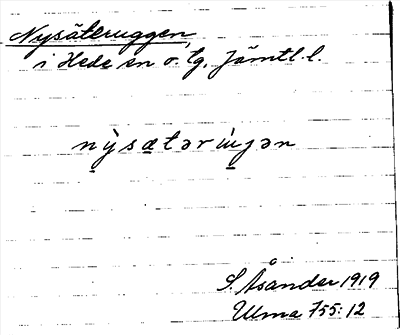 Nysäteruggen,
i Hede sn o. tg, Jämtl. l.
nỳsætərùŋən
S. Åsander 1919
Ulma 755:12